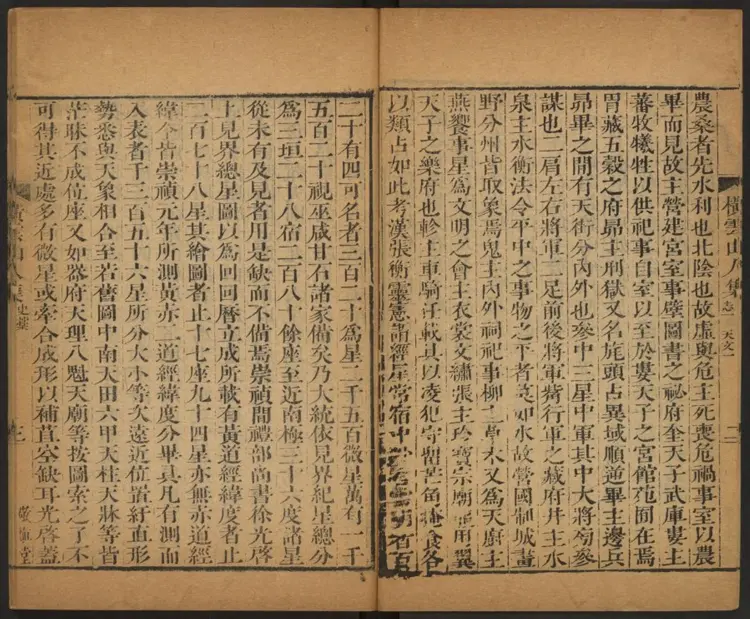 農桑者先水利也北陰也故虛與危主死喪危禍事室以農
畢而見故主營建宮室事壁圖書之祕府奎天子武庫婁主
蕃牧犧牲以供祀事自室以至於婁天子之宮館苑囿在焉
胃藏五穀之府昴主刑獄又名旄頭占異域順逆畢主邊兵
昴畢之閒有天街分內外也參中三星中軍其中大將參
謀也二肩左右將軍二足前後將軍觜行軍之藏府井主水
泉主水衡法令平中之事物之平者莫如水故營國制城畫
野分州皆取象焉鬼主內外祠祀事柳主草木又為天廚主
燕饗事星為文明之會主衣裳文繡張主珍寶宗廟服用翼
天子之樂府也軫主車騎任載其以凌犯守留芒角掩食各
以類占如此考漢張衡靈憲諸經星常宿中外官常明者百
橫雲山人集 志一 天文一 二
二十有四可名者三百二十為星二千五百微星萬有一千
五百二十視巫咸甘石諸家備矣乃大統依見界紀星總分
為三垣二十八宿二百八十餘座至近南極三十六度諸星
從未有及見者用是缺而不備焉崇禎間禮部尚書徐光啓
上見界總星圖以為回回曆立成所載有黃道經緯度者止
二百七十八星其繪圖者止十七座九十四星亦無赤道經
緯今皆崇禎元年所測黃赤二道經緯度分畢具凡有測而
入表者千三百五十六星所分大小等次遠近位置紆直形
勢悉與天象相合至若舊圖中南天田六甲天柱天牀等皆
茫昧不成位座又如器府天理八魁天廟等按圖索之了不
可得其近處多有微星或牽合成形以補苴空缺耳光啓蓋
橫雲山人集 史藁 三 敬慎堂